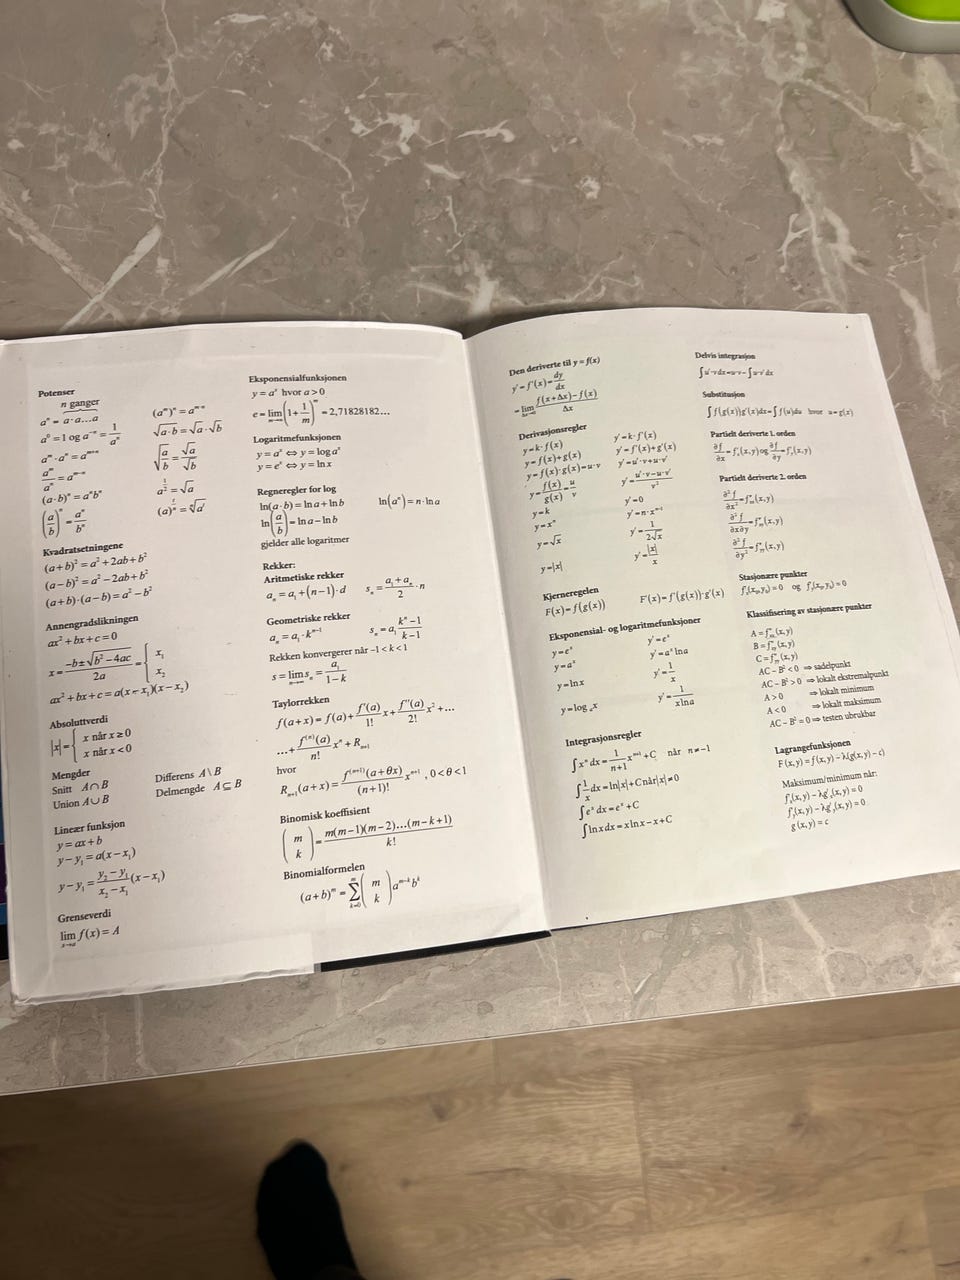 Potenser
n ganger
aⁿ = a·a…a
a⁰ = 1 og a⁻ⁿ = 1/aⁿ
aᵐ·aⁿ = aᵐ⁺ⁿ
aᵐ/aⁿ = aᵐ⁻ⁿ
(a·b)ⁿ = aⁿbⁿ
(a/b)ⁿ = aⁿ/bⁿ
√(a·b) = √a·√b
√(a/b) = √a/√b
a^(1/2) = √a
Kvadratsetningene
(a+b)² = a² + 2ab + b²
(a−b)² = a² − 2ab + b²
(a+b)·(a−b) = a² − b²
Annengradslikningen
ax² + bx + c = 0
x = (−b±√(b²−4ac))/2a = { x₁ x₂
ax² + bx + c = a(x−x₁)(x−x₂)
Absoluttverdi
|x| = { x når x ≥ 0
x når x < 0
Mengder
Snitt A∩B
Union A∪B
Differens A\B
Delmengde A⊆B
Lineær funksjon
y = ax + b
y − y₁ = a(x − x₁)
y − y₁ = (y₂ − y₁)/(x₂ − x₁) (x − x₁)
Grenseverdi
lim x→a f(x) = A
Eksponensialfunksjonen
y = aˣ hvor a > 0
e = lim m→∞ (1 + 1/m)ᵐ = 2,71828182…
Logaritmefunksjonen
y = aˣ ⇔ y = log aˣ
y = eˣ ⇔ y = ln x
Regneregler for log
ln(a·b) = ln a + ln b
ln(aⁿ) = n·ln a
ln(a/b) = ln a − ln b
gjelder alle logaritmer
Rekker:
Aritmetiske rekker
aₙ = a₁ + (n−1)·d
sₙ = (a₁ + aₙ)/2 · n
Geometriske rekker
aₙ = a₁·kⁿ⁻¹
sₙ = a₁ (kⁿ − 1)/(k − 1)
Rekken konvergerer når −1 < k < 1
s = lim n→∞ sₙ = a₁/(1−k)
Taylorrekken
f(a+x) = f(a) + f'(a)/1! x + f''(a)/2! x² + …
… + f⁽ⁿ⁾(a)/n! xⁿ + Rₙ₊₁
hvor
Rₙ₊₁(a+x) = f⁽ⁿ⁺¹⁾(a+θx)/(n+1)! xⁿ⁺¹ , 0 < θ < 1
Binomisk koeffisient
(m k) = m(m−1)(m−2)…(m−k+1)/k!
Binomialformelen
(a+b)ᵐ = Σ k=0 m (m k) aᵐ⁻ᵏbᵏ
Den deriverte til y = f(x)
y' = f'(x) = dy/dx
= lim Δx→0 (f(x+Δx) − f(x))/Δx
Derivasjonsregler
y = k·f(x) y' = k·f'(x)
y = f(x) + g(x) y' = f'(x) + g'(x)
y = f(x)·g(x) = u·v y' = u'·v + u·v'
y = f(x)/g(x) = u/v y' = (u'·v − u·v')/v²
y = k y' = 0
y = xⁿ y' = n·xⁿ⁻¹
y = √x y' = 1/(2√x)
y = |x| y' = |x|/x
Kjerneregelen
F(x) = f(g(x)) F'(x) = f'(g(x))·g'(x)
Eksponensial- og logaritmefunksjoner
y = eˣ y' = eˣ
y = aˣ y' = aˣ ln a
y = ln x y' = 1/x
y = logₐ x y' = 1/(x ln a)
Integrasjonsregler
∫xⁿ dx = 1/(n+1) xⁿ⁺¹ + C når n ≠ −1
∫1/x dx = ln|x| + C når |x| ≠ 0
∫eˣ dx = eˣ + C
∫ln x dx = x ln x − x + C
Delvis integrasjon
∫u'·v dx = u·v − ∫u·v' dx
Substitusjon
∫f(g(x))g'(x)dx = ∫f(u)du hvor u = g(x)
Partielt deriverte 1. orden
∂f/∂x = f'ₓ(x,y) og ∂f/∂y = f'ᵧ(x,y)
Partielt deriverte 2. orden
∂²f/∂x² = f''ₓₓ(x,y)
∂²f/∂x∂y = f''ₓᵧ(x,y)
∂²f/∂y² = f''ᵧᵧ(x,y)
Stasjonære punkter
f'ₓ(x₀,y₀) = 0 og f'ᵧ(x₀,y₀) = 0
Klassifisering av stasjonære punkter
A = f''ₓₓ(x,y)
B = f''ₓᵧ(x,y)
C = f''ᵧᵧ(x,y)
AC − B² < 0 ⇒ sadelpunkt
AC − B² > 0 ⇒ lokalt ekstremalpunkt
A > 0 ⇒ lokalt minimum
A < 0 ⇒ lokalt maksimum
AC − B² = 0 ⇒ testen ubrukbar
Lagrangefunksjonen
F(x,y) = f(x,y) − λ(g(x,y) − c)
Maksimum/minimum når:
f'ₓ(x,y) − λg'ₓ(x,y) = 0
f'ᵧ(x,y) − λg'ᵧ(x,y) = 0
g(x,y) = c